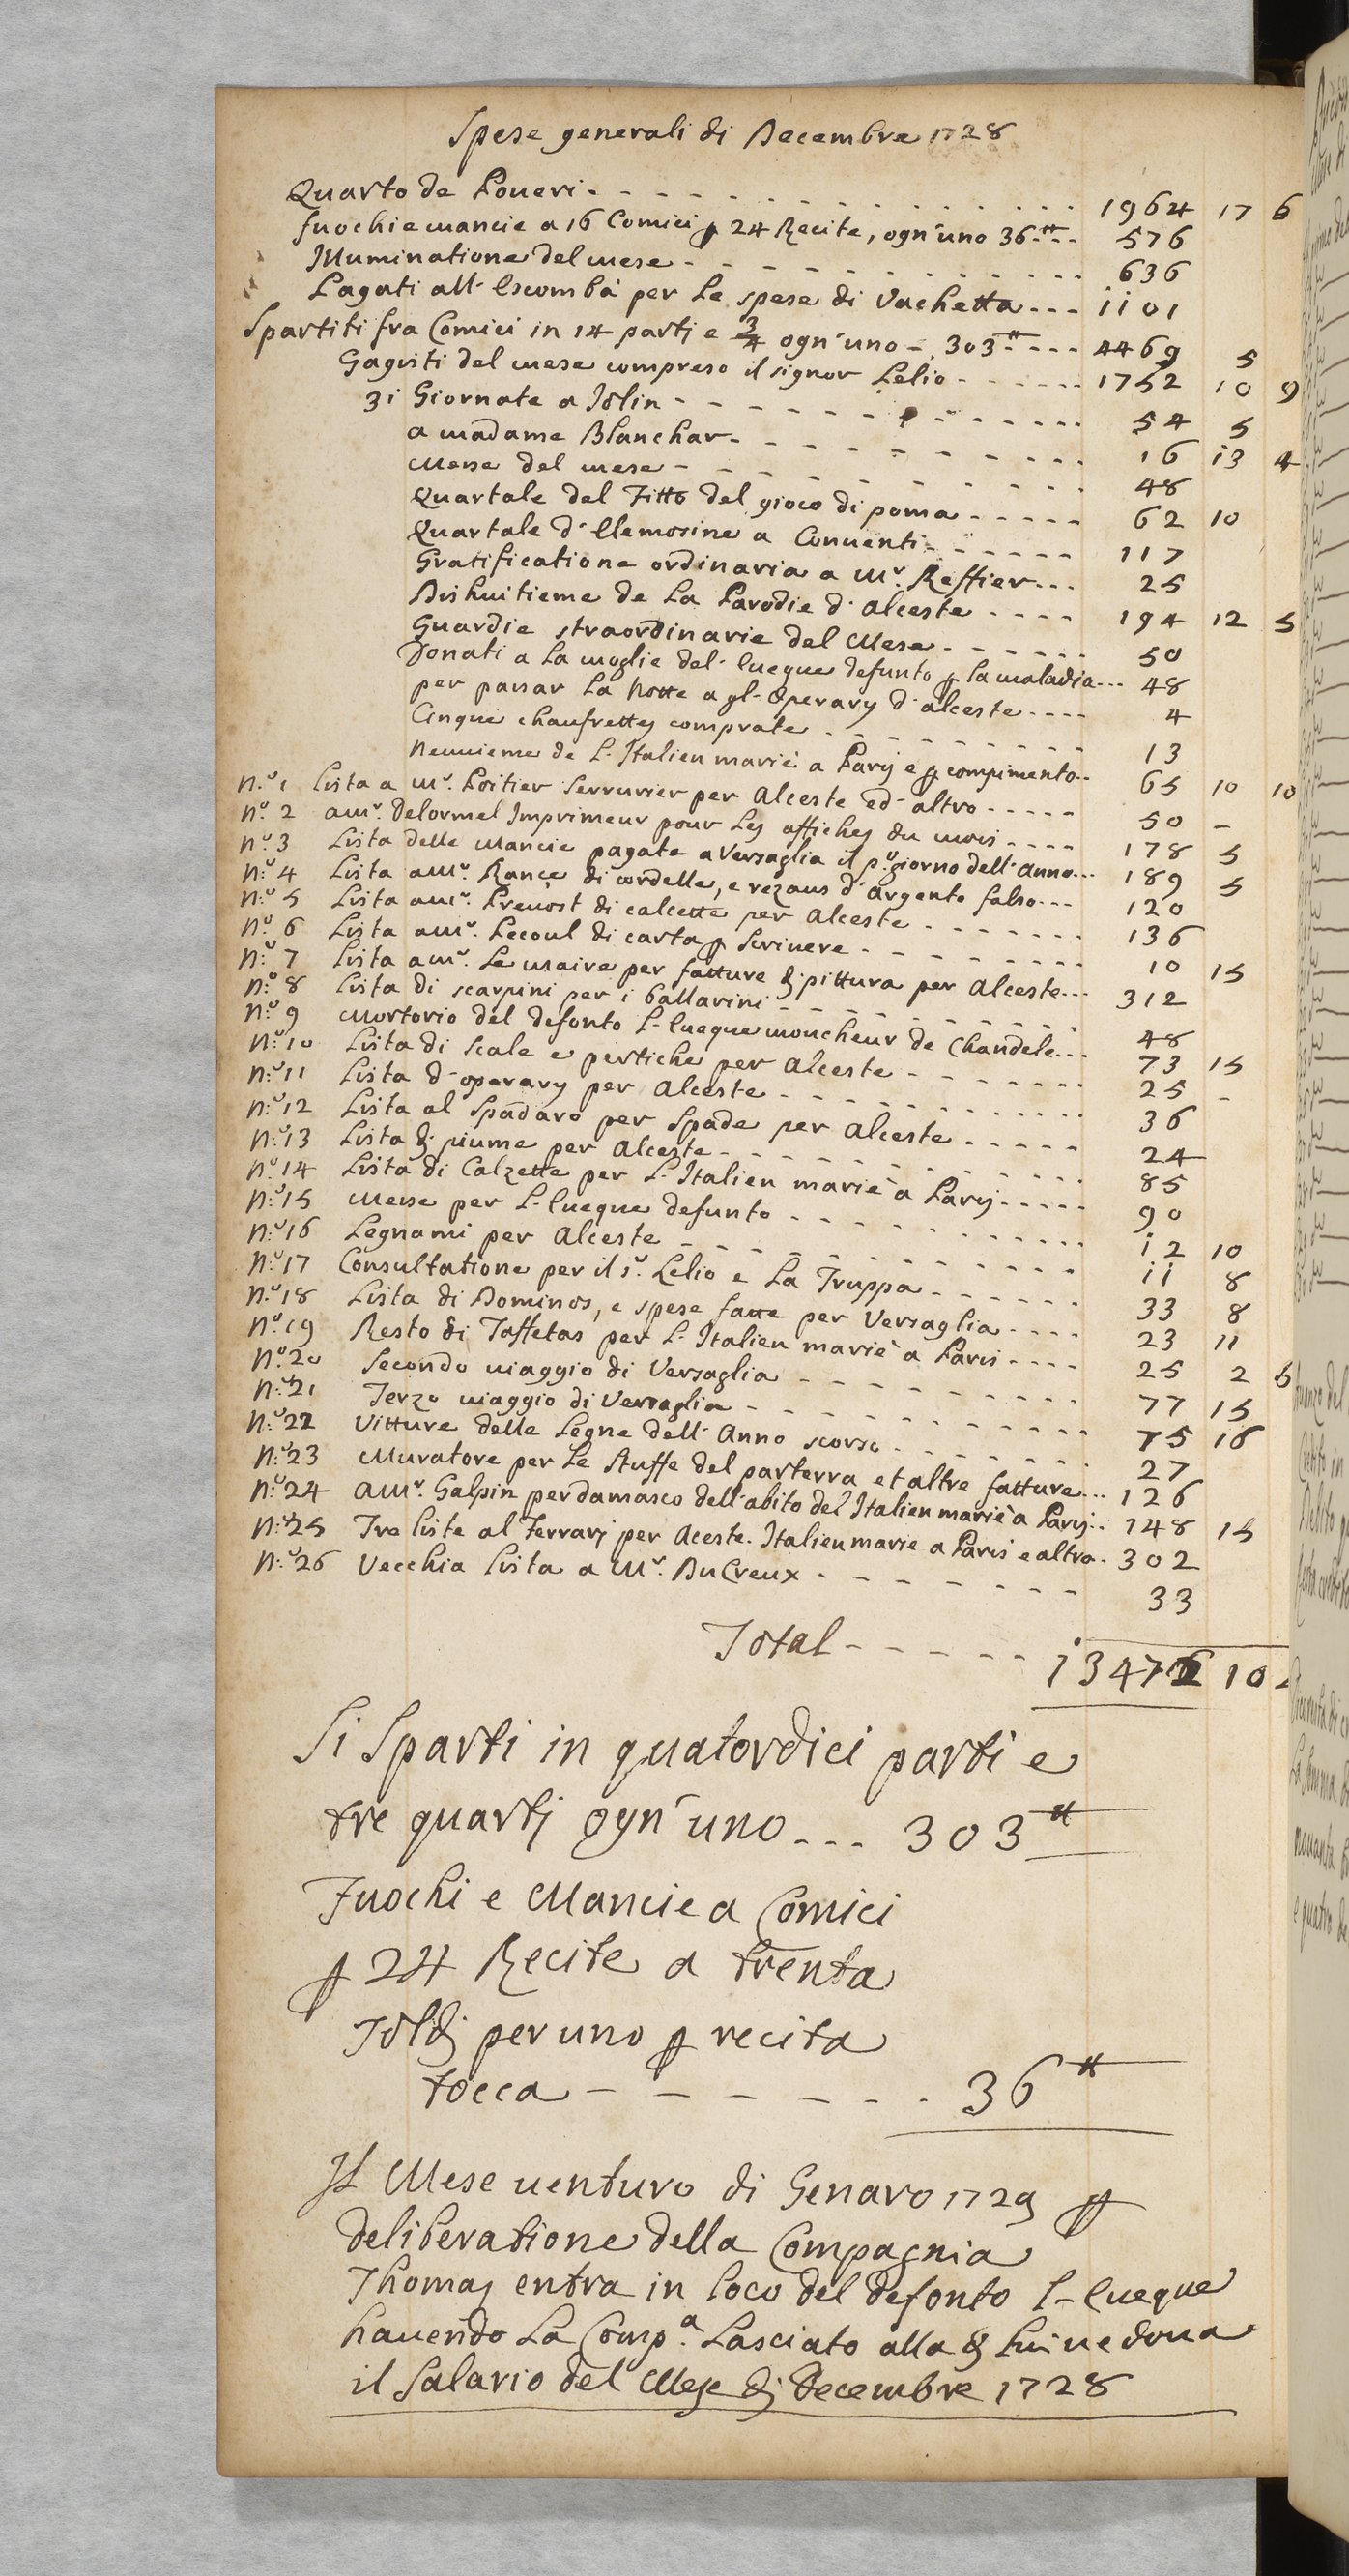 Spese generali di Decembre 1728
Quarto de Poueri - - - - - 1964 17 6
fuochi e mancie a 16 Comici ꝑ 24 Recite, ogn'uno 36.tt - - 576
Illuminatione del mese - - - - - 636
Pagati all' Escombà per le spese di Vachetta - - - 1101
Spartiti fra Comici in 14 parti e 3/4 ogn'uno - 303tt - - - 4469 5
Gagisti del mese compreso il signor Lelio - - - - - 1752 10 9
31 Giornate a Jolin - - - - - 54 5
a madame Blanchar - - - - - 16 13 4
Messe del mese - - - - - 48
Quartale del Fitto del gioco di poma - - - - - 62 10
Quartale d'Elemosine a Conuenti - - - - - 117
Gratificatione ordinaria a Mr. Reffier - - - 25
Dishuitieme de La Parodie d'alceste - - - - 194 12 5
Guardie straordinarie del Mese - - - - - 50
Donati a la moglie del l'ueque defunto ꝑ la maladia - - - 48
per passar La notte a gl'operary d'alceste - - - - 4
Cinque chaufrettes comprate - - - - - 13
Neuuieme de L'Italien marié a Paris e ꝑ compimento - - 65 10 10
N.o 1 Lista a Mr. Poitier Serrurier per Alceste ed altro - - - - - 50 -
N.o 2 a Mr. Delormel Imprimeur pour Les affiches du mois - - - - 178 5
N.o 3 Lista delle Mancie pagate a Versaglia il p.o giorno dell'Anno - - - 189 5
N.o 4 Lista a Mr. Rance di cordelle, e rezaus d'argento falso - - - 120
N.o 5 Lista a Mr. Preuost di calcette per Alceste - - - - - 136
N.o 6 Lista a Mr. Lecoul di carta ꝑ Scriuere - - - - - 10 15
N.o 7 Lista a Mr. Le Maire per fatture di pittura per Alceste - - - 312
N.o 8 Lista di scarpini per i ballarini - - - - - 48
N.o 9 Mortorio del defonto L'lueque moucheur de Chandele - - - 73 15
N.o 10 Lista di Scale e pertiche per Alceste - - - - - 25 -
N.o 11 Lista d'operary per Alceste - - - - - 36
N.o 12 Lista al Spadaro per Spade per Alceste - - - - - 24
N.o 13 Lista di piume per Alceste - - - - - 85
N.o 14 Lista di Calzette per L'Italien marié a Paris - - - - - 90
N.o 15 Messe per L'lueque defunto - - - - - 12 10
N.o 16 Legnami per Alceste - - - - - 11 8
N.o 17 Consultatione per il s.r Lelio e La Truppa - - - - - 33 8
N.o 18 Lista di Dominos, e spese fatte per Versaglia - - - - 23 11
N.o 19 Resto di Taffetas per L'Italien marié a Paris - - - - 25 2 6
N.o 20 Secondo uiaggio di Versaglia - - - - - 77 15
N.o 21 Terzo uiaggio di Versaglia - - - - - 75 16
N.o 22 Vitture delle Legne dell'Anno scorso - - - - - 27
N.o 23 Muratore per Le Stuffe del parterra et altre fatture - - - 126
N.o 24 a Mr. Galpin per damasco dell'abito del Italien marié a Paris - - 148 15
N.o 25 Tre liste al Ferrari per Aceste. Italien marie a Paris e altro - 302
N.o 26 Vecchia Lista a Mr. DuCreux - - - - - 33
Total - - - - - 13472 10
Si Sparti in quatordici parti e
tre quarti ogn'uno - - - 303tt
Fuochi e Mancie a Comici
ꝑ 24 Recite a trenta
Soldi per uno ꝑ recita
tocca - - - - - 36tt
Il Mese uenturo di Genaro 1729 ꝑ
deliberatione della Compagnia
Thomas entra in loco del defonto l'lueque
hauendo La Comp.a Lasciato alla di Lui uedoua
il Salario del Mese di Decembre 1728